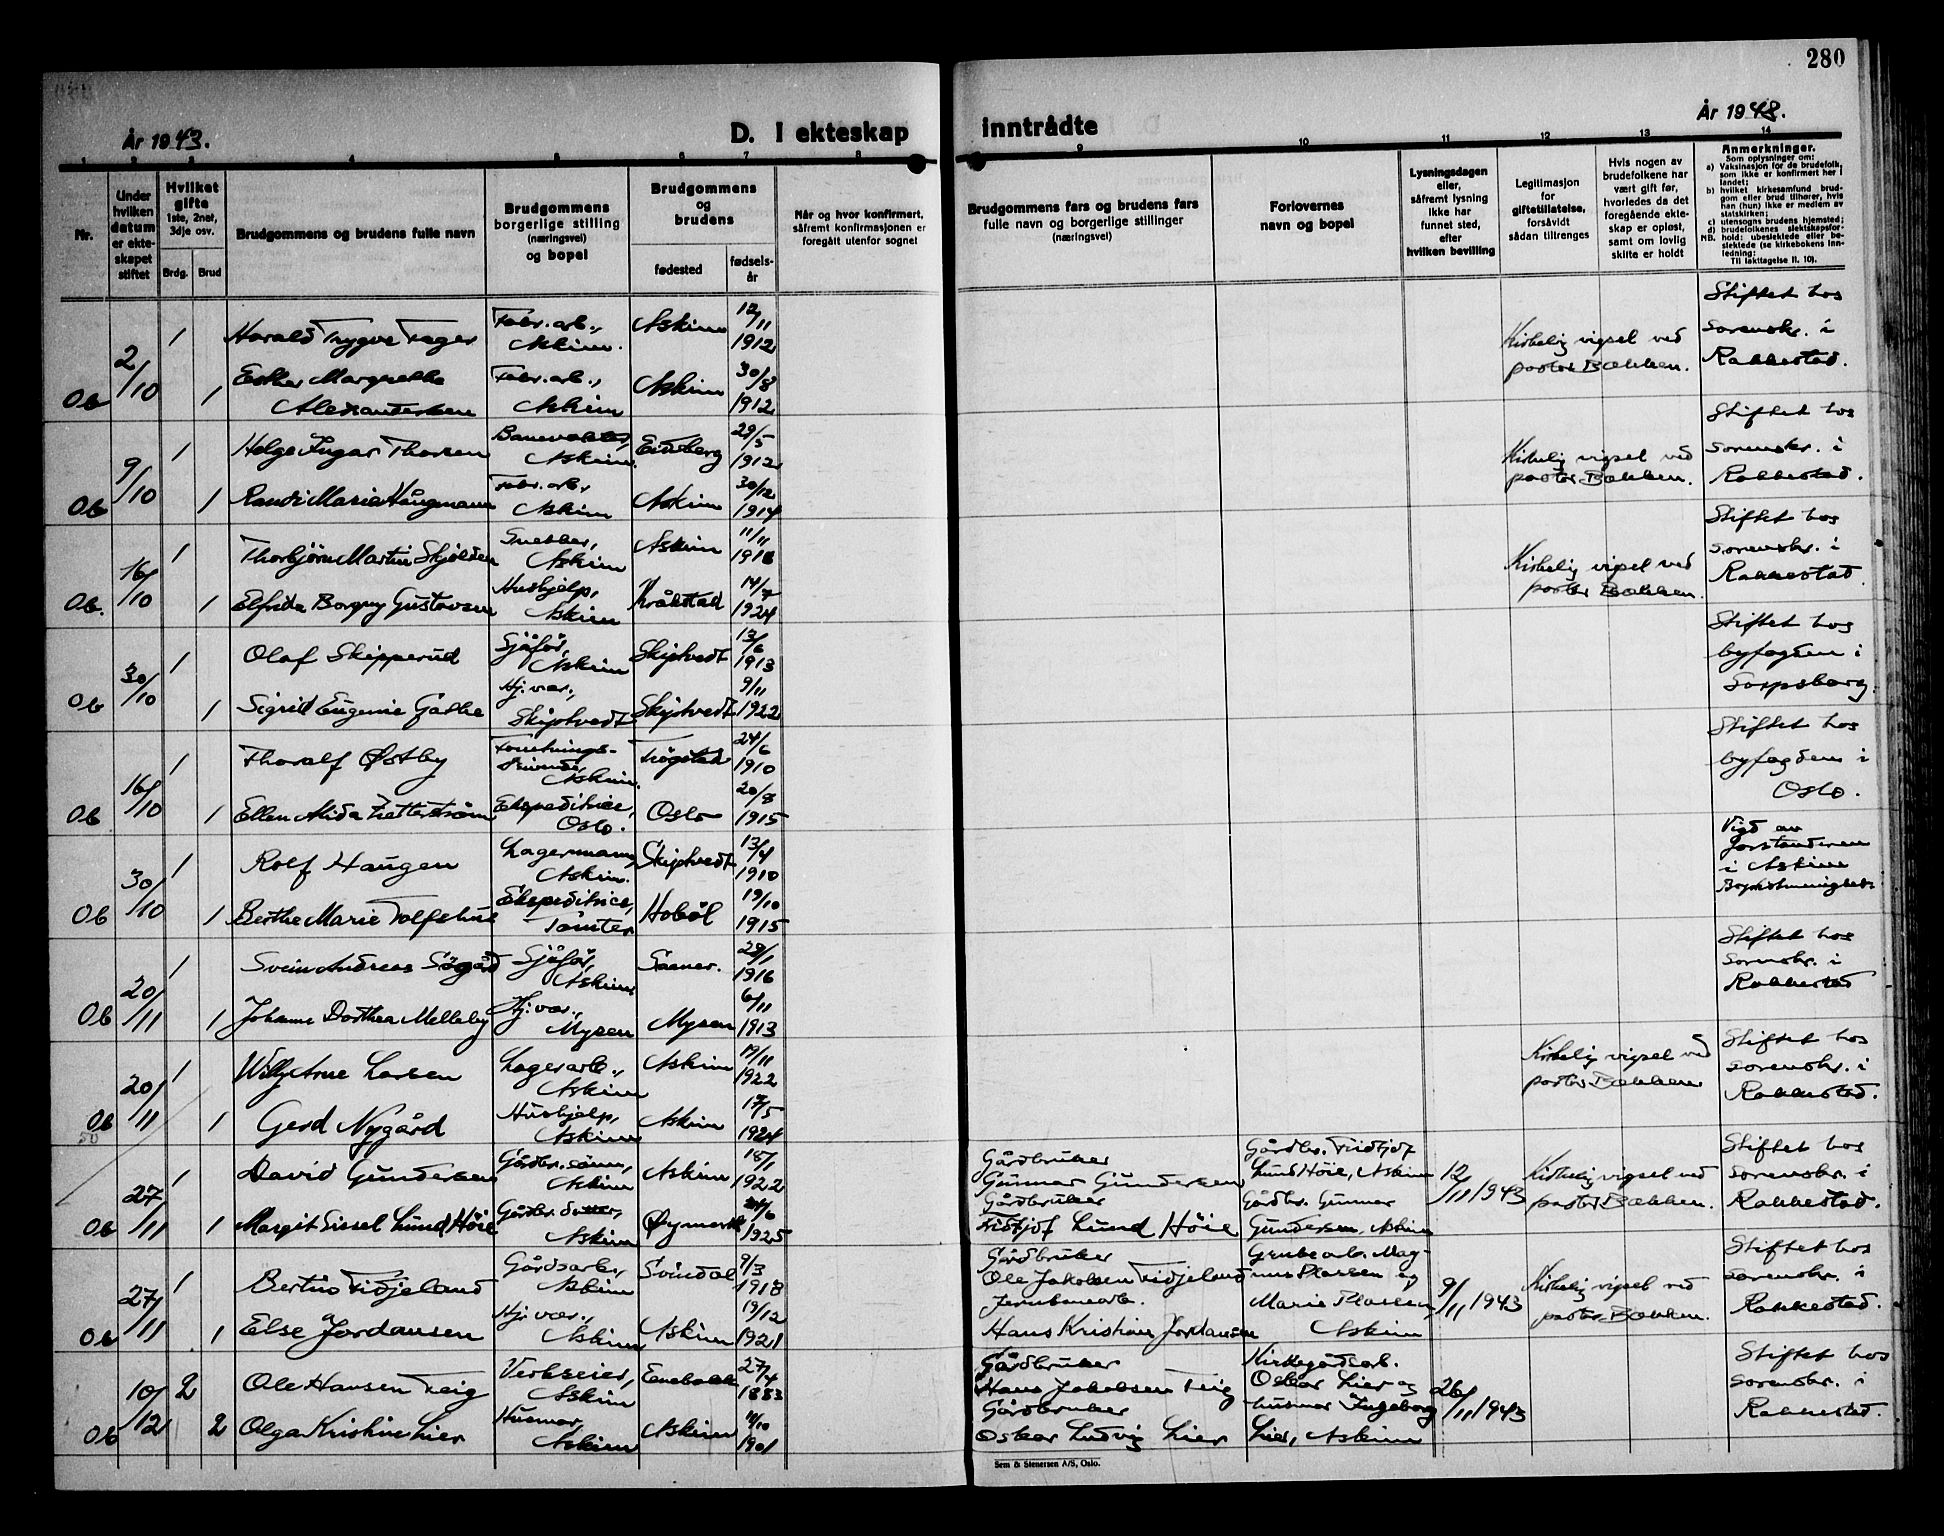 280
År 1943.
D. I ekteskap
inntrådte
År 1943.
1 2 3 4 5 6 7 8
9 10 11 12 13 14
Nr.
Under
hvilken
datum
er ekte-
skapet
stiftet
Hvilket
gifte
1ste, 2net,
3dje osv.
Brdg. Brud
Brudgommens og brudens fulle navn
Brudgommens
borgerlige stilling
(næringsvei)
og bopel
Brudgommens
og
brudens
fødested
fødsels-
år
Når og hvor konfirmert,
såfremt konfirmasjonen er
foregått utenfor sognet
Brudgommens fars og brudens fars
fulle navn og borgerlige stillinger
(næringsvei)
Forlovernes
navn og bopel
Lysningsdagen
eller,
såfremt lysning
ikke har
funnet sted,
efter
hvilken bevilling
Legitimasjon
for
giftetillatelse,
forsåvidt
sådan tiltrenges
Hvis nogen av
brudefolkene har
vært gift før,
hvorledes da det
foregående ekte-
skap er opløst,
samt om lovlig
skifte er holdt
Anmerkninger.
Som oplysninger om:
a) Vaksinasjon for de brudefolk,
som ikke er konfirmert her i
landet;
b) hvilket kirkesamfund brud-
gom eller brud tilhører, hvis
han (hun) ikke er medlem av
statskirken;
c) utensogns brudens hjemsted;
d) brudefolkenes slektskapsfor-
hold: ubeslektede eller be-
slektede (se kirkebokens inn-
ledning:
NB. Til iakttagelse II. 10).
Ob 2/10 1 Harald Trygve Fager Fabr.arb., Askim. Askim 12/11 1912
1 Esther Margrethe Alexandersen Fabr.arb., Askim Askim 30/8 1912
Kirkelig vigsel ved
pastor Bækken.
Stiftet hos
sorenskr. i
Rakkestad.
Ob 9/10 1 Helge Ingar Thorsen Banevokter, Askim. Eidsberg 29/5 1912
1 Randi Marie Haugmann Fabr.arb., Askim Askim 30/12 1914
Kirkelig vigsel ved
pastor Bækken.
Stiftet hos
sorenskr. i
Rakkestad.
Ob. 16/10 1 Thorbjørn Martin Skjolden Snekker, Askim Askim 11/11
1 Elfrida Borgny Gustavsen Hushjelp, Askim Kråkstad 14/7 1924
Kirkelig vigsel ved
pastor Bækken.
Stiftet hos
sorenskr. i
Rakkestad.
Ob 30/10 1 Olaf Skipperud Sjåfør, Askim Skiptvedt 13/6 1913
1 Sigrid Eugenie Hj.vær., Skiptvedt Skiptvedt 9/11 1922
Stiftet hos
byfogden i
Sarpsborg.
Ob 16/10 1 Thoralf Østby Askim. Trøgstad 24/6 1910
1 Ellen Alida Zetterstrøm Ekspeditrice, Oslo. Oslo 20/8 1915
Stiftet hos
byfogden i
Oslo.
Ob 30/10 1 Rolf Haugen Lagermann, Askim. Skiptvedt 13/4 1910
1 Berthe Marie Tolfshus Ekspeditrice, Tomter Hobøl 19/10 1915
Vigd av
forstanderen
i Askim
Ob 20/11 1 Svein Andreas Søgård Sjåfør, Askim Saaner. 28/1 1916
1 Johanne Dorthea Melleby Hj.vær., Mysen Mysen 6/11 1913
Stiftet hos
sorenskr. i
Rakkestad
Ob 20/11 1 Willy Arne Larsen Lagerarb., Askim Askim 19/11 1922
1 Gerd Nygård Hushjelp, Askim Askim 17/5 1924
Kirkelig vigsel ved
pastor Bækken
Stiftet hos
sorenskr. i
Rakkestad.
50
Ob 27/11 1 David Gundersen Gårdbr.sønn, Askim Askim 18/1 1922
1 Margit Sissel Lund Høie Gårdbr.datter, Askim Øymark 21/6 1925
Gårdbruker
Gunnar Gundersen
Gårdbruker
Fridtjof Lund Høie
Gårdbr. Fridtjof
Lund Høie, Askim
Gårdbr. Gunnar
Gundersen, Askim
12/11 1943
Kirkelig vigsel ved
pastor Bækken.
Stiftet hos
sorenskr. i
Rakkestad.
Ob 27/11 1 Bertino Fidjeland Gårdsarb., Askim Svindal 9/3 1918
1 Else Jordansen Hj.vær., Askim Askim 19/12 1921
Gårdbruker
Ole Jakobsen Fidjeland
Jernbanearb.
Hans Kristian Jordansen
Grubearb. Mag-
nus Plassen og
Marie Plassen,
Askim
9/11 1943
Kirkelig vigsel ved
pastor Bækken.
Stiftet hos
sorenskr. i
Rakkestad.
Ob 10/12 2 Ole Hansen Teig Verkseier, Askim Enebakk 27/4 1883
2 Olga Kristine Lier Husmor, Askim Askim 1901
Gårdbruker
Hans Jakobsen Teig
Gårdbruker
Oskar Ludvig Lier
Kirkegårdsarb.
Oskar Lier og
husmor Ingeborg
Lier, Askim
26/11 1943
Stiftet hos
sorenskr. i
Rakkestad.
Sem & Stenersen A/S, Oslo.